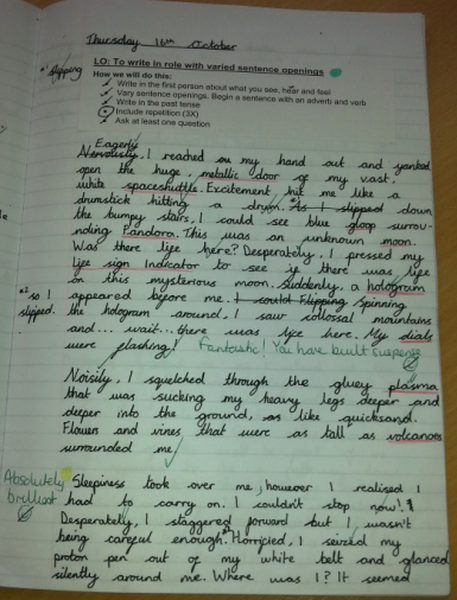 Thursday 16th October
LO: To write in role with varied sentence openings
*1 slipping
How we will do this:
Write in the first person about what you see, hear and feel
Vary sentence openings. Begin a sentence with an adverb and verb
Write in the past tense
Include repetition (3X)
Ask at least one question
Eagerly
Nervously, I reached my hand out and yanked
open the huge, metallic door of my vast,
white spaceshuttle. Excitement, hit me like a
drumstick hitting a drum. *1 As I slipped down
the bumpy stairs, I could see blue gloop surrou-
nding Pandora. This was an unknown moon.
Was there life here? Desperately, I pressed my
life sign Indicator to see if there was life
on this mysterious moon. Suddenly, a hologram
*2 so I
slipped.
appeared before me. I could Flipping Spinning
the hologram around, I saw colossal mountains
and... wait... there was life here. My dials
were flashing! Fantastic! You have built suspense
Noisily, I squelched through the gluey plasma
that was sucking my heavy legs deeper and
deeper into the ground, as like quicksand.
Flowers and vines that were as tall as volcanoes
surrounded me
Absolutely
brilliant
Sleepiness took over me, however I realised I
had to carry on. I couldn't stop now!
Desperately, I staggered forward but I wasn't
being careful enough. Horrified, I seized my
proton pen out of my white belt and glanced
silently around me. Where was I? It seemed